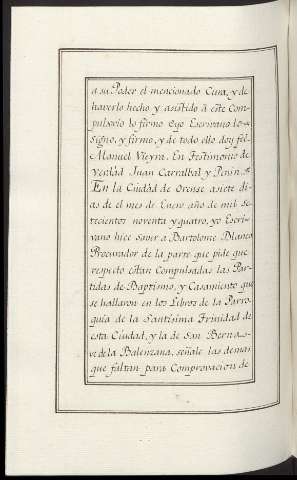 a su Poder el mencionado Cura, y de
haverlo hecho y asistido á este Com-
pulsorio lo firmo. Eyo Escrivano lo
signo, y firmo, y de todo ello doy feé.
Manuel Vieyra. En Testimonio de
verdád Juan Carralbal y Penin.
En la Ciudád de Orense asiete di-
as de el mes de Enero año de mil se-
tecientos noventa y quatro, yo Escri-
vano hice saver a Bartolomé Blanco
Procurador de la parte que pide que
respecto están Compulsadas las Par-
tidas de Baptismo, y Casamiento que
se hallaron en los Libros de la Parro-
quia de la Santísima Trinidad de
esta Ciudad, y la de San Berna-
vé de la Balenzana, señale las demas
que faltan para Comprovacion de